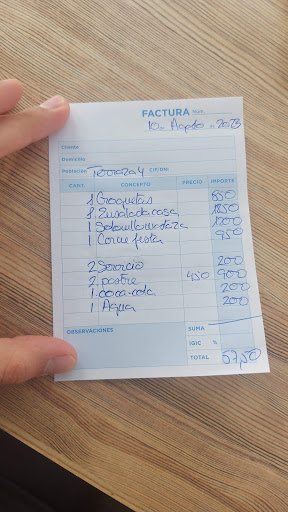 FACTURA Núm.
10 de Agosto de 2023
Cliente
Domicilio
Población Terraza 4 CIF/DNI
CANT. CONCEPTO PRECIO IMPORTE
1 Croquetas 850
1 Ensalada casa 1250
1 1200
1 Carne fiesta 950
2 Servicio 200
2 postre 450 900
1 coca-cola 200
1 Agua 200
OBSERVACIONES SUMA
IGIC %
TOTAL 57,50